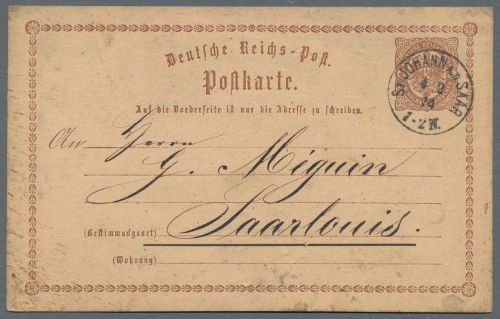 Deutsche Reichs-Post.
Postkarte.
ST JOHANN a.d. SAAR
74
1-2 N.
Auf die Vorderseite ist nur die Adresse zu schreiben.
An Herrn
G. Méguin
(Bestimmungsort) Saarlouis.
(Wohnung)